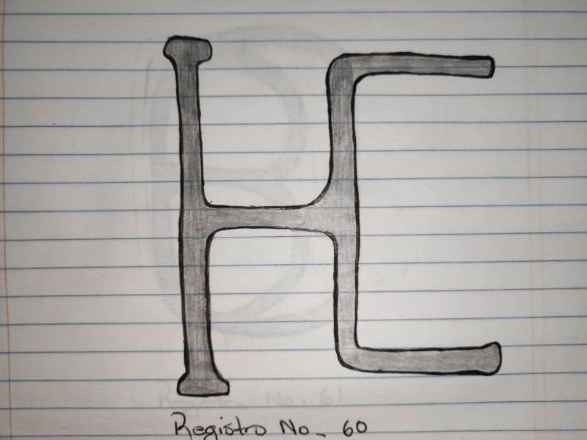 HC
Registro No. 60